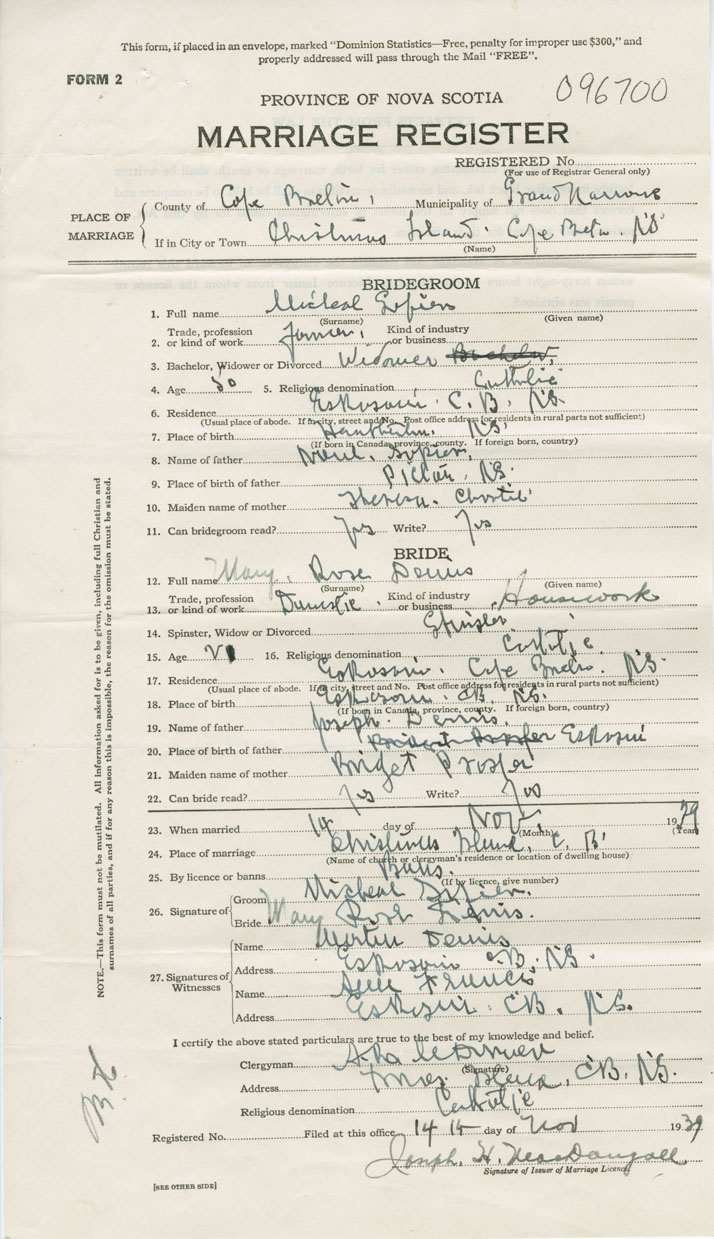 This form, if placed in an envelope, marked "Dominion Statistics—Free, penalty for improper use $300," and
properly addressed will pass through the Mail "FREE".
FORM 2
096700
PROVINCE OF NOVA SCOTIA
MARRIAGE REGISTER
REGISTERED No.
(For use of Registrar General only)
PLACE OF MARRIAGE
County of Cape Breton, Municipality of Grand Narrows
If in City or Town Christmas Island. Cape Breton. N.S.
(Name)
BRIDEGROOM
1. Full name Micheal
(Surname) (Given name)
2. Trade, profession or kind of work Farmer, Kind of industry or business
3. Bachelor, Widower or Divorced Widower Bachelor,
4. Age 5. Religious denomination Catholic
6. Residence Eskasoni. C. B. N.S.
(Usual place of abode. If in city, street and No. Post office address for residents in rural parts not sufficient)
7. Place of birth N.S.
(If born in Canada, province, county. If foreign born, country)
8. Name of father
9. Place of birth of father Pictou, N.S.
10. Maiden name of mother Theresa. Christie
11. Can bridegroom read? Yes Write? Yes
BRIDE
12. Full name Mary, Rose Dennis
(Surname) (Given name)
13. Trade, profession or kind of work Domestic. Kind of industry or business Housework
14. Spinster, Widow or Divorced Spinster.
15. Age 16. Religious denomination Catholic
17. Residence Eskasoni. Cape Breton. N.S.
(Usual place of abode. If in city, street and No. Post office address for residents in rural parts not sufficient)
18. Place of birth Eskasoni. C.B. N.S.
(If born in Canada, province, county. If foreign born, country)
19. Name of father Joseph. Dennis.
20. Place of birth of father Eskasoni
21. Maiden name of mother Bridget Prosper
22. Can bride read? Yes Write? Yes
23. When married 14 day of Nov. 1939
(Month) (Year)
24. Place of marriage Christmas Island, C. B.
(Name of church or clergyman's residence or location of dwelling house)
25. By licence or banns Banns.
(If by licence, give number)
26. Signature of
Groom Micheal
Bride Mary Rose Dennis.
27. Signatures of Witnesses
Name Martin Dennis
Address Eskasoni C.B. N.S.
Name Francis
Address Eskasoni. C.B. N.S.
I certify the above stated particulars are true to the best of my knowledge and belief.
Clergyman
(Signature)
Address Island, C.B. N.S.
Religious denomination Catholic
Registered No. Filed at this office 14 day of Nov 1939
Joseph. H. MacDougall
Signature of Issuer of Marriage Licence
[SEE OTHER SIDE]
NOTE.—This form must not be mutilated. All information asked for is to be given, including full Christian and
surnames of all parties, and if for any reason this is impossible, the reason for the omission must be stated.